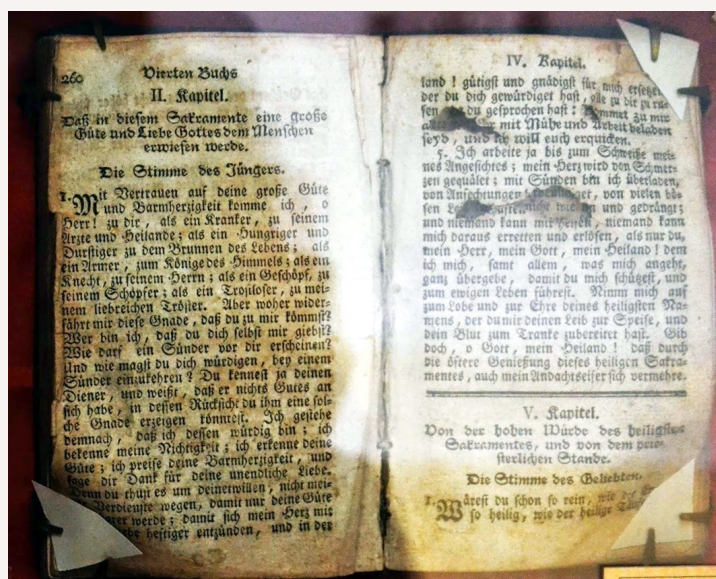 260 Vierten Buchs
II. Kapitel.
Daß in diesem Sakramente eine große
Güte und Liebe Gottes dem Menschen
erwiesen werde.
Die Stimme des Jüngers.
1. Mit Vertrauen auf deine große Güte
und Barmherzigkeit komme ich, o
Herr! zu dir, als ein Kranker, zu seinem
Arzte und Heilande; als ein Hungriger und
Durstiger zu dem Brunnen des Lebens; als
ein Armer, zum Könige des Himmels; als ein
Knecht, zu seinem Herrn; als ein Geschöpf, zu
seinem Schöpfer; als ein Trostloser, zu mei-
nem liebreichen Tröster. Aber woher wider-
fährt mir diese Gnade, daß du zu mir kömmst?
Wer bin ich, daß du dich selbst mir giebst?
Wie darf ein Sünder vor dir erscheinen?
Und wie magst du dich würdigen, bey einem
Sünder einzukehren? Du kennest ja deinen
Diener, und weißt, daß er nichts Gutes an
sich habe, in dessen Rücksicht du ihm eine sol-
che Gnade erzeigen könntest. Ich gestehe
demnach, daß ich dessen würdig bin; ich
bekenne meine Nichtigkeit; ich erkenne deine
Güte; ich preise deine Barmherzigkeit, und
sage dir Dank für deine unendliche Liebe.
Denn du thust es um deinetwillen, nicht mei-
Verdienste wegen, damit nur deine Güte
werde; damit sich mein Herz mit
heftiger entzünden, und in der
IV. Kapitel.
land! gütigst und gnädigst für mich ersetzen
der du dich gewürdiget hast, alle zu dir zu rü-
sen du gesprochen hast: Kommet zu mir
mit Mühe und Arbeit beladen
seyd, und ich will euch erquicken.
5. Ich arbeite ja bis zum Schweiße mei-
nes Angesichtes; mein Herz wird von Schmer-
zen gequälet; mit Sünden bin ich überladen,
von Anfechtungen von vielen bö-
sen und gedrängt;
und niemand kann mir helfen, niemand kann
mich daraus erretten und erlösen, als nur du,
mein Herr, mein Gott, mein Heiland! dem
ich mich, samt allem, was mich angeht,
ganz übergebe, damit du mich schützest, und
zum ewigen Leben führest. Nimm mich auf
zum Lobe und zur Ehre deines heiligsten Na-
mens, der du mir deinen Leib zur Speise, und
dein Blut zum Tranke zubereitet hast. Gib
doch, o Gott, mein Heiland! daß durch
die öftere Genießung dieses heiligen Sakra-
mentes, auch mein Andachtseifer sich vermehre.
V. Kapitel.
Von der hohen Würde des heiligsten
Sakramentes, und von dem prie-
sterlichen Stande.
Die Stimme des Geliebten.
1. Wärest du schon so rein, wie die
so heilig, wie der heilige